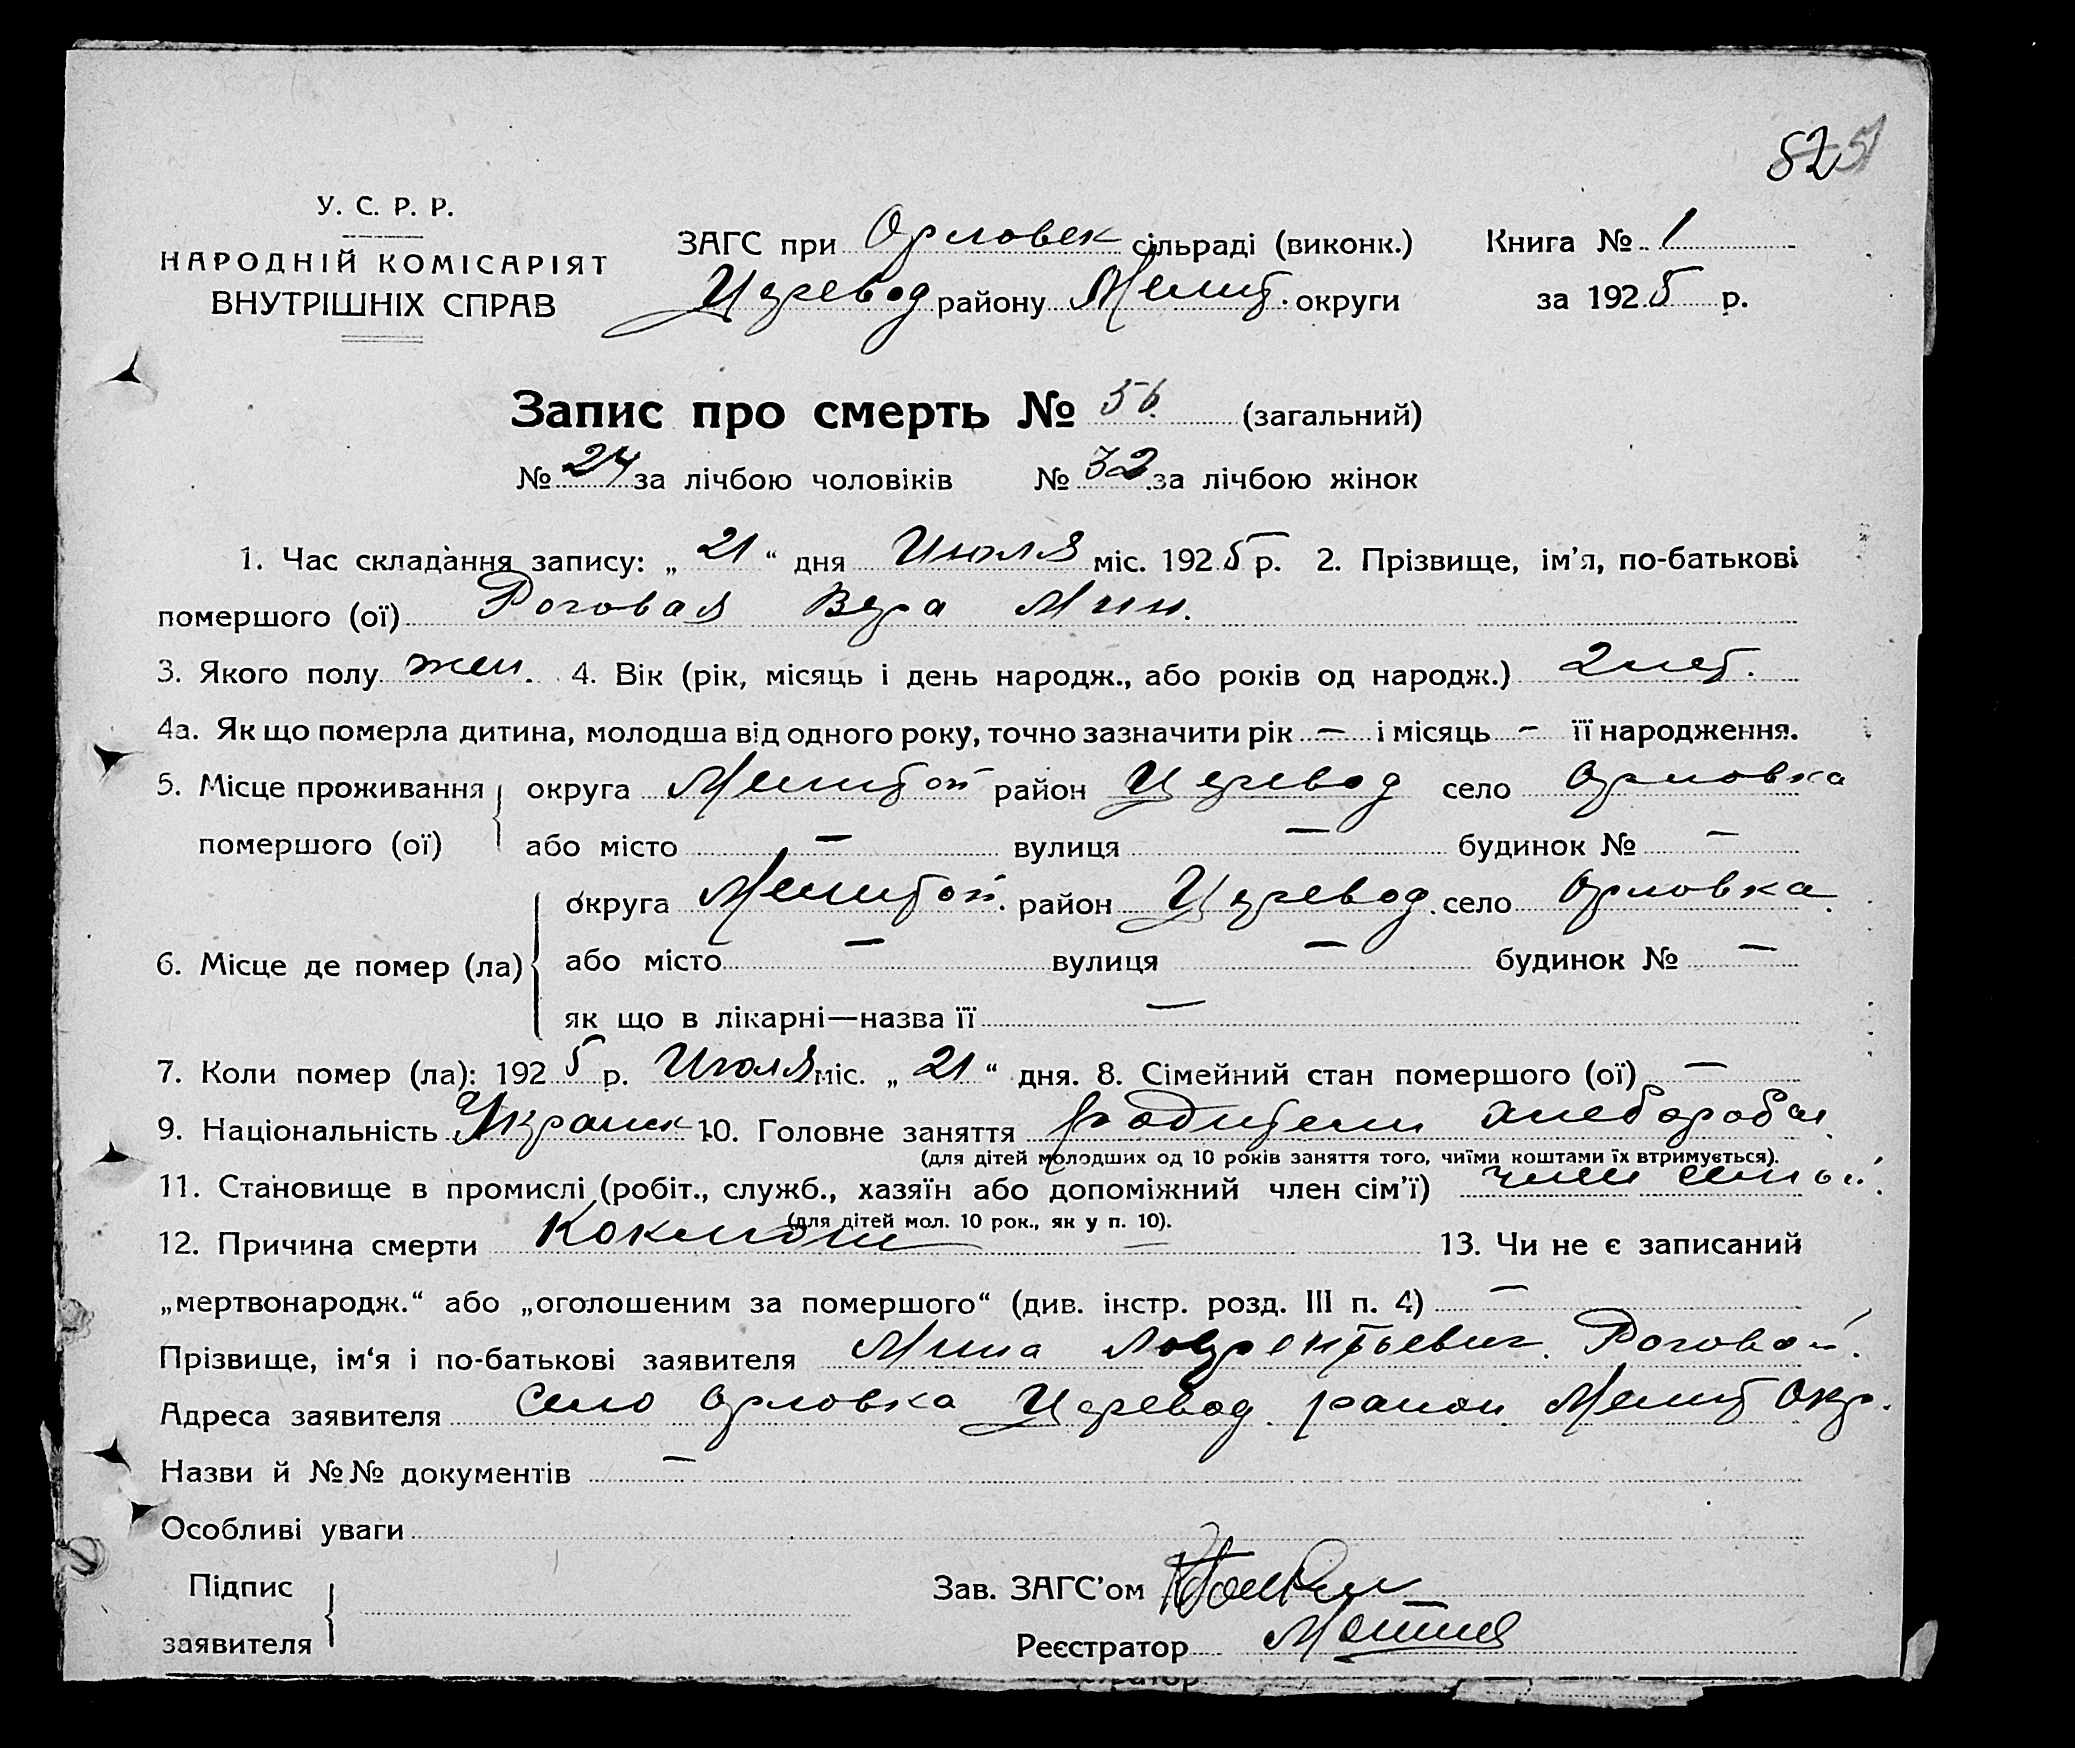 52 51
У. С. Р. Р.
НАРОДНІЙ КОМІСАРІЯТ
ВНУТРІШНІХ СПРАВ
ЗАГС при Орловск сільраді (виконк.) Книга № 1
Церевод району Мелит. округи за 1925 р.
Запис про смерть № 56. (загальний)
№ 24 за лічбою чоловіків № 32 за лічбою жінок
1. Час складання запису: „ 21 “ дня Июля міс. 1925 р. 2. Прізвище, ім’я, по-батькові
помершого (ої) Роговая Вера Мин.
3. Якого полу жен. 4. Вік (рік, місяць і день народж., або років од народж.) 2 лет.
4а. Як що померла дитина, молодша від одного року, точно зазначити рік — і місяць — її народження.
5. Місце проживання округа Мелитоп район Церевод село Орловка
помершого (ої) або місто — вулиця — будинок № —
округа Мелитоп. район Церевод. село Орловка
6. Місце де помер (ла) або місто — вулиця — будинок № —
як що в лікарні—назва її —
7. Коли помер (ла): 1925 р. Июля міс. „ 21 “ дня. 8. Сімейний стан помершого (ої) —
9. Національність Украин 10. Головне заняття родители хлеборобы.
(для дітей молодших од 10 років заняття того, чиїми коштами їх втримується).
11. Становище в промислі (робіт., служб., хазяїн або допоміжний член сім’ї) член семьи.
(для дітей мол. 10 рок., як у п. 10).
12. Причина смерти Коклюш — 13. Чи не є записаний
„мертвонародж.“ або „оголошеним за помершого“ (див. інстр. розд. III п. 4) —
Прізвище, ім‘я і по-батькові заявителя Мина Лаврентьевич. Роговой.
Адреса заявителя Село Орловка Церевод. район Мелит Окр.
Назви й №№ документів —
Особливі уваги
Підпис
заявителя
Зав. ЗАГС’ом
Реєстратор